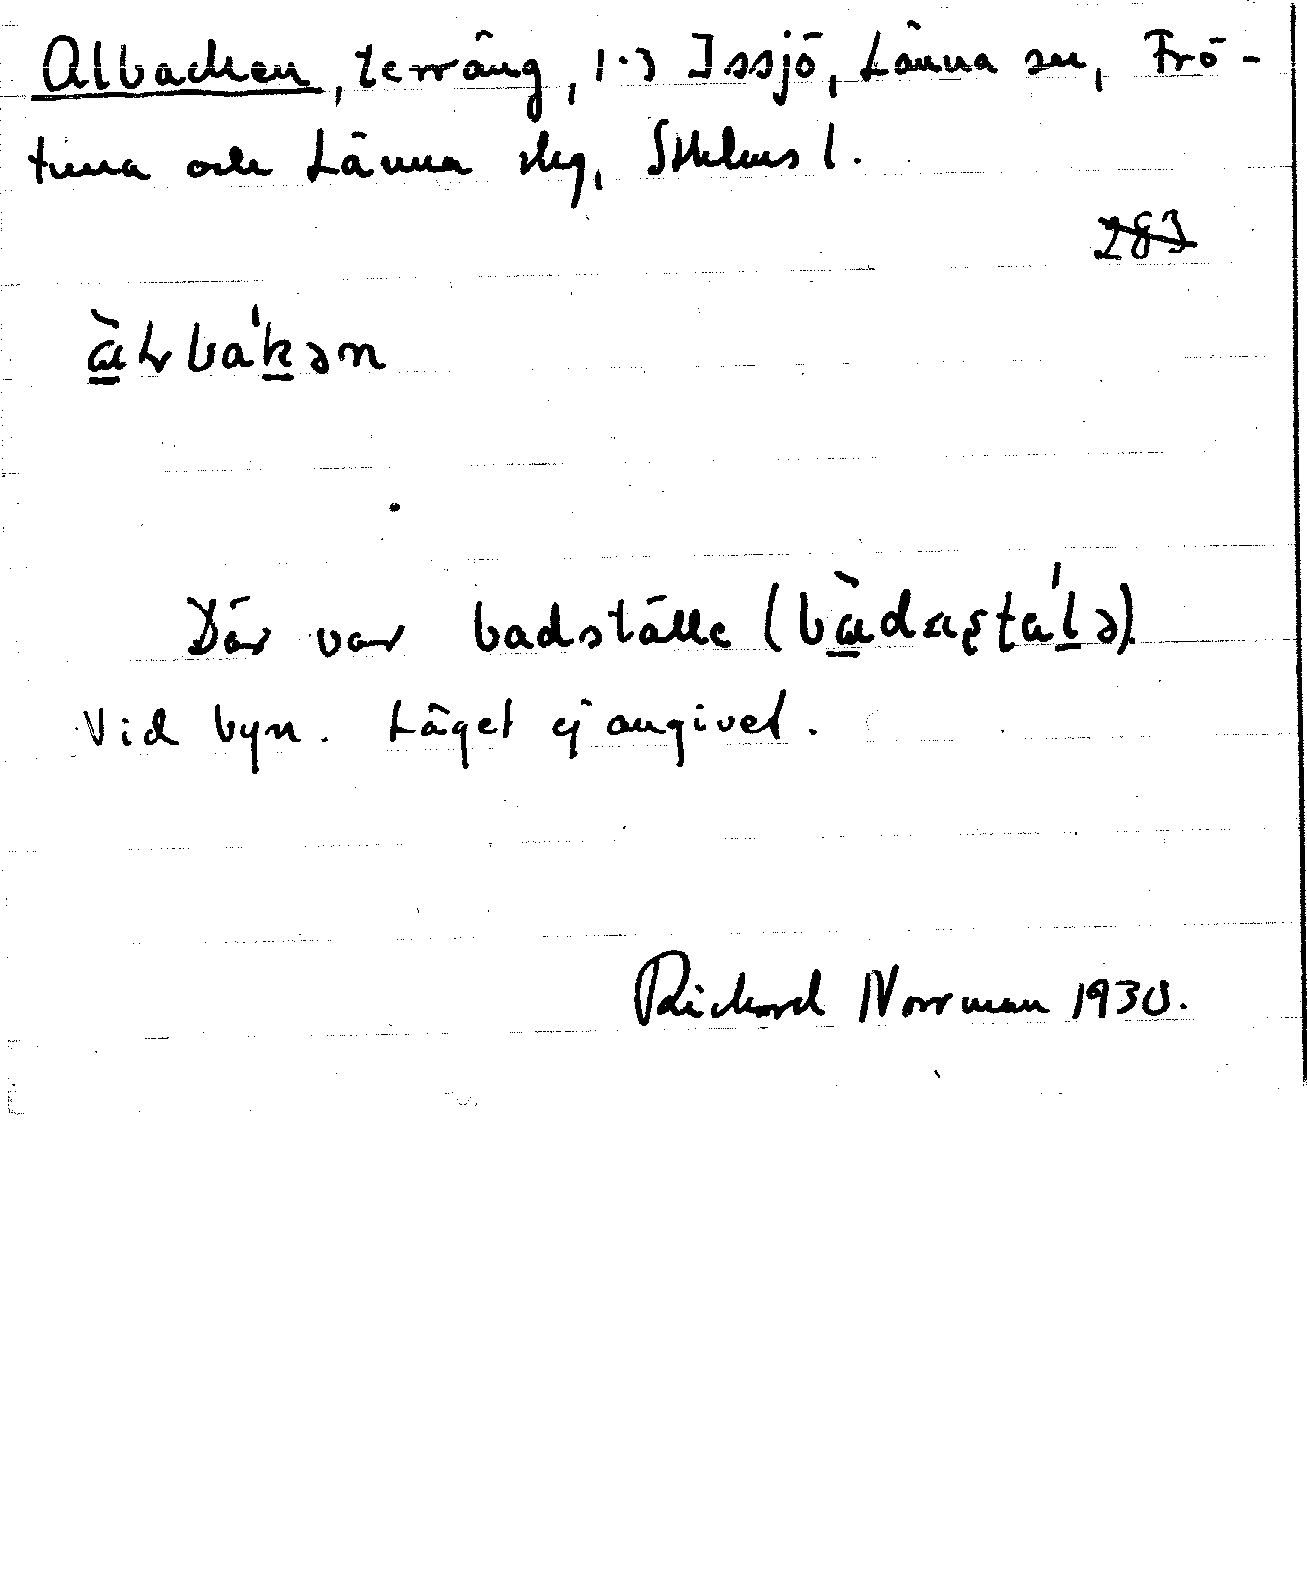 Albacken, terräng, 1-3 Issjö, Länna sn, Frö-
tuna och Länna skg, Sthlms l.
283
Där var badställe
Vid byn. Läget ej angivet.
Rickard Norrman 1930.